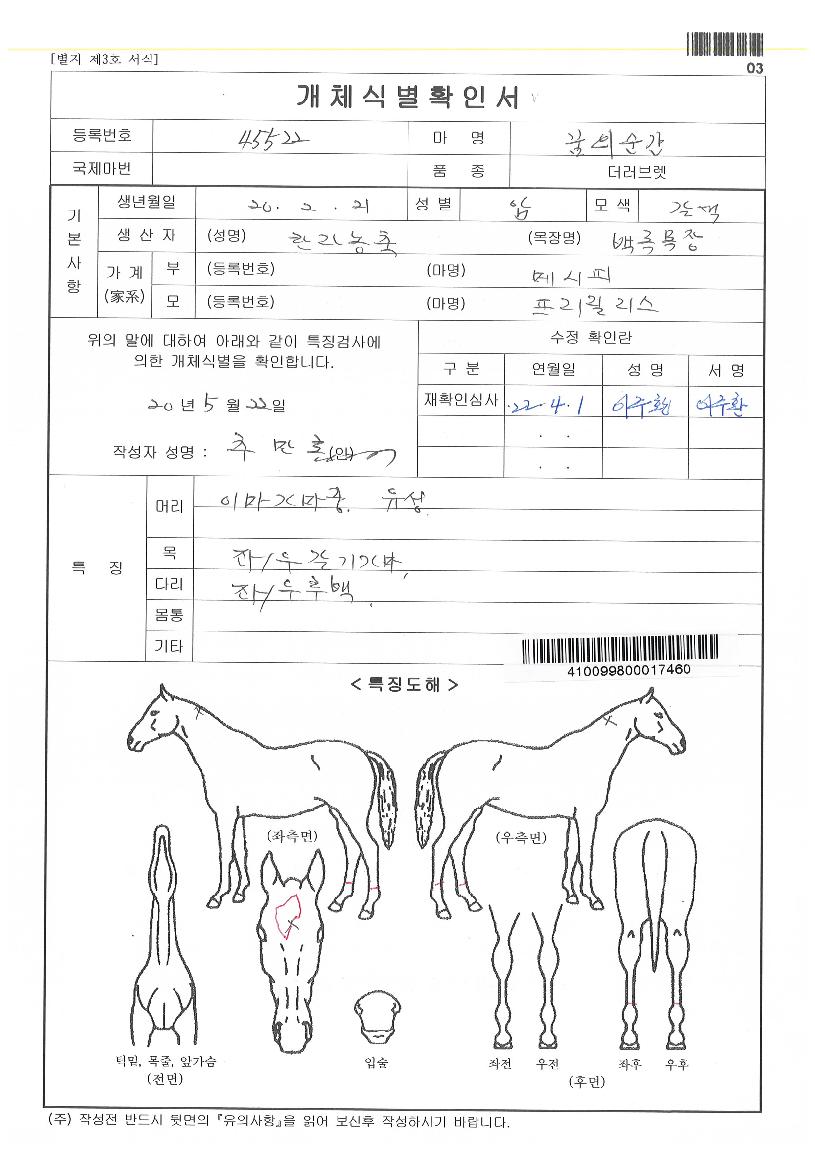 [별지 제3호 서식]
03
개체식별확인서
등록번호 45522 마 명 꿈의순간
국제마번 품 종 더러브렛
기본사항
생년월일 20. 2. 21 성별 암 모색 갈색
생산자 (성명) 한라농축 (목장명) 백록목장
가계 (家系) 부 (등록번호) (마명) 메시피
모 (등록번호) (마명) 프리월리스
위의 말에 대하여 아래와 같이 특징검사에
의한 개체식별을 확인합니다.
20년 5월 22일
작성자 성명 : 추 만 호 (인)
수정 확인란
구 분 연월일 성 명 서 명
재확인심사 22.4.1 이주환 이주환
. .
. .
특 징
머리 이마가마중. 유성.
목 좌/우 갈기가마.
다리 좌/우후백.
몸통
기타
410099800017460
< 특징도해 >
(좌측면) (우측면)
턱밑, 목줄, 앞가슴
(전면)
입술
좌전 우전 좌후 우후
(후면)
(주) 작성전 반드시 뒷면의 『유의사항』을 읽어 보신후 작성하시기 바랍니다.